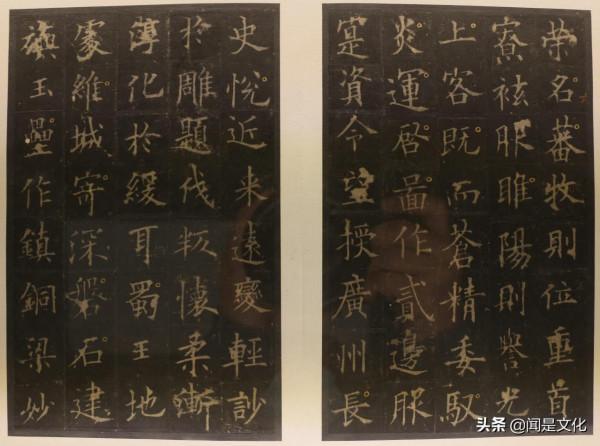 榮名蕃牧則位重
寮袨服睢陽則譽光
上客既而蒼精委馭
炎運啓啚作貳邊服
寔資令望授廣州長
史悅近来遠變輕訬
於雕題伐叛懷柔漸
淳化於緩耳蜀王地
處維城寄深磐石建
旟玉壘作鎮銅梁妙
头条 @闻是文化